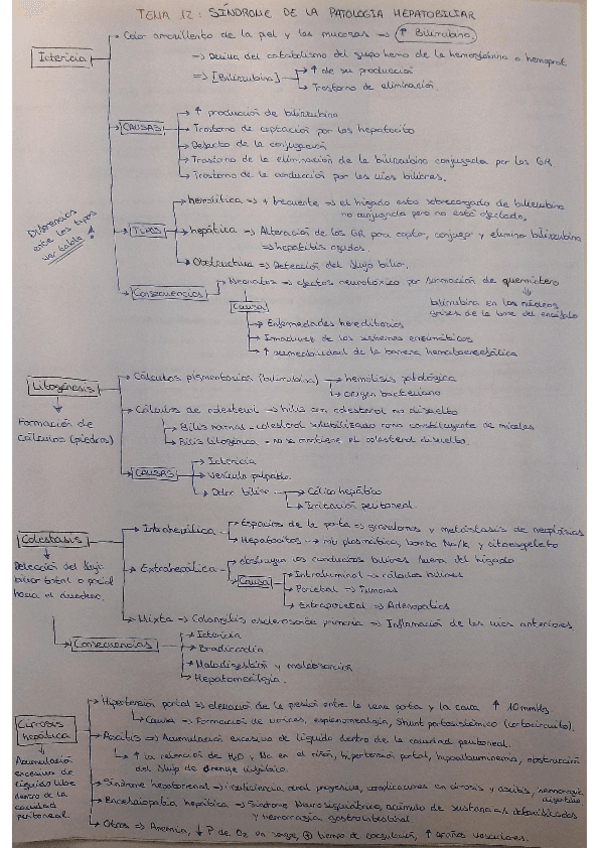 TEMA 12: SÍNDROME DE LA PATOLOGIA HEPATOBILIAR
Ictericia
Color amarillento de la piel y las mucosas => ↑ Bilirrubina
=> Deriva del catabolismo del grupo hemo de la hemoglobina o hemoprot.
=> [Bilirrubina] → ↑ de su producción
→ Trastorno de eliminación.
CAUSAS
→ ↑ producción de bilirrubina
→ Trastorno de captación por los hepatocito
→ Defecto de la conjugación
→ Trastorno de la eliminación de la bilirrubina conjugada por los GR
→ Trastorno de la conducción por las vías biliares.
Diferencias entre los tipos ver tabla!
TIPOS
→ hemolítica => + frecuente => el hígado esta sobrecargado de bilirrubina
no conjugada pero no está afectado.
→ hepática => Alteración de los GR para captar, conjugar y elimina bilirrubina
=> hepatitis agudas.
→ Obstructura => Detección del flujo biliar.
Consecuencias
→ Neonatos => efectos neurotóxico por formación de quernictero
bilirrubina en los núcleos
grises de la base del encéfalo
Causa
→ Enfermedades hereditarias
→ Inmadurez de los sistemas enzimáticos
→ ↑ permeabilidad de la barrera hematoencefálica
Litogénesis
Formación de
cálculos (piedras)
→ Cálculos pigmentarios (bilirrubina) → hemólisis patológica
→ origen bacteriano
→ Cálculos de colesterol => bilis con colesterol no disuelto
→ Bilis normal - colesterol solubilizado como constituyente de micelas
→ Bilis litogénica - no se mantiene el colesterol disuelto.
CAUSAS
→ Ictericia
→ Vesícula palpable.
→ Dolor biliar → Cólico hepático
→ Irritación peritoneal.
Colestasis
Detección del flujo
biliar total o parcial
hacia el duodeno.
→ Intrahepática
→ Espacios de la porta => granulomas y metástasis de neoplasias
→ Hepatocitos → mb plasmática, bomba Na/K y citoesqueleto
→ Extrahepática
→ obstruyen los conductos biliares fuera del hígado
Causa
→ Intraluminal → cálculos biliares
→ Parietal → Tumores
→ Extraparietal => Adenopatías
→ Mixta => Colangitis esclerosante primaria => Inflamación de las vías anteriores.
Consecuencias
→ Ictericia
→ Bradicardia
→ Maladigestión y malabsorción
→ Hepatomegalia.
Cirrosis
hepática
Acumulación
excesiva de
líquido libre
dentro de la
cavidad
peritoneal
→ Hipertensión portal => elevación de la presión entre la vena porta y la cava ↑ 10 mmHg
→ Causa → Formación de varices, esplenomegalia, Shunt portosistémico (cortocircuito).
→ Ascitis => Acumulación excesiva de líquido dentro de la cavidad peritoneal.
→ ↑ la retención de H2O y Na en el riñón, hipertensión portal, hipoalbuminemia, obstrucción
del flujo de drenaje linfático.
→ Síndrome hepatorrenal → insuficiencia renal progresiva, complicaciones en cirrosis y ascitis, hemorragia
digestiva
→ Encefalopatía hepática => Síndrome Neuropsiquiátrico, acúmulo de sustancias
y hemorragia gastrointestinal
→ Otros => Anemia, ↓ P de O2 en sangre, ⊕ tiempo de coagulación, ↑ arañas vasculares.